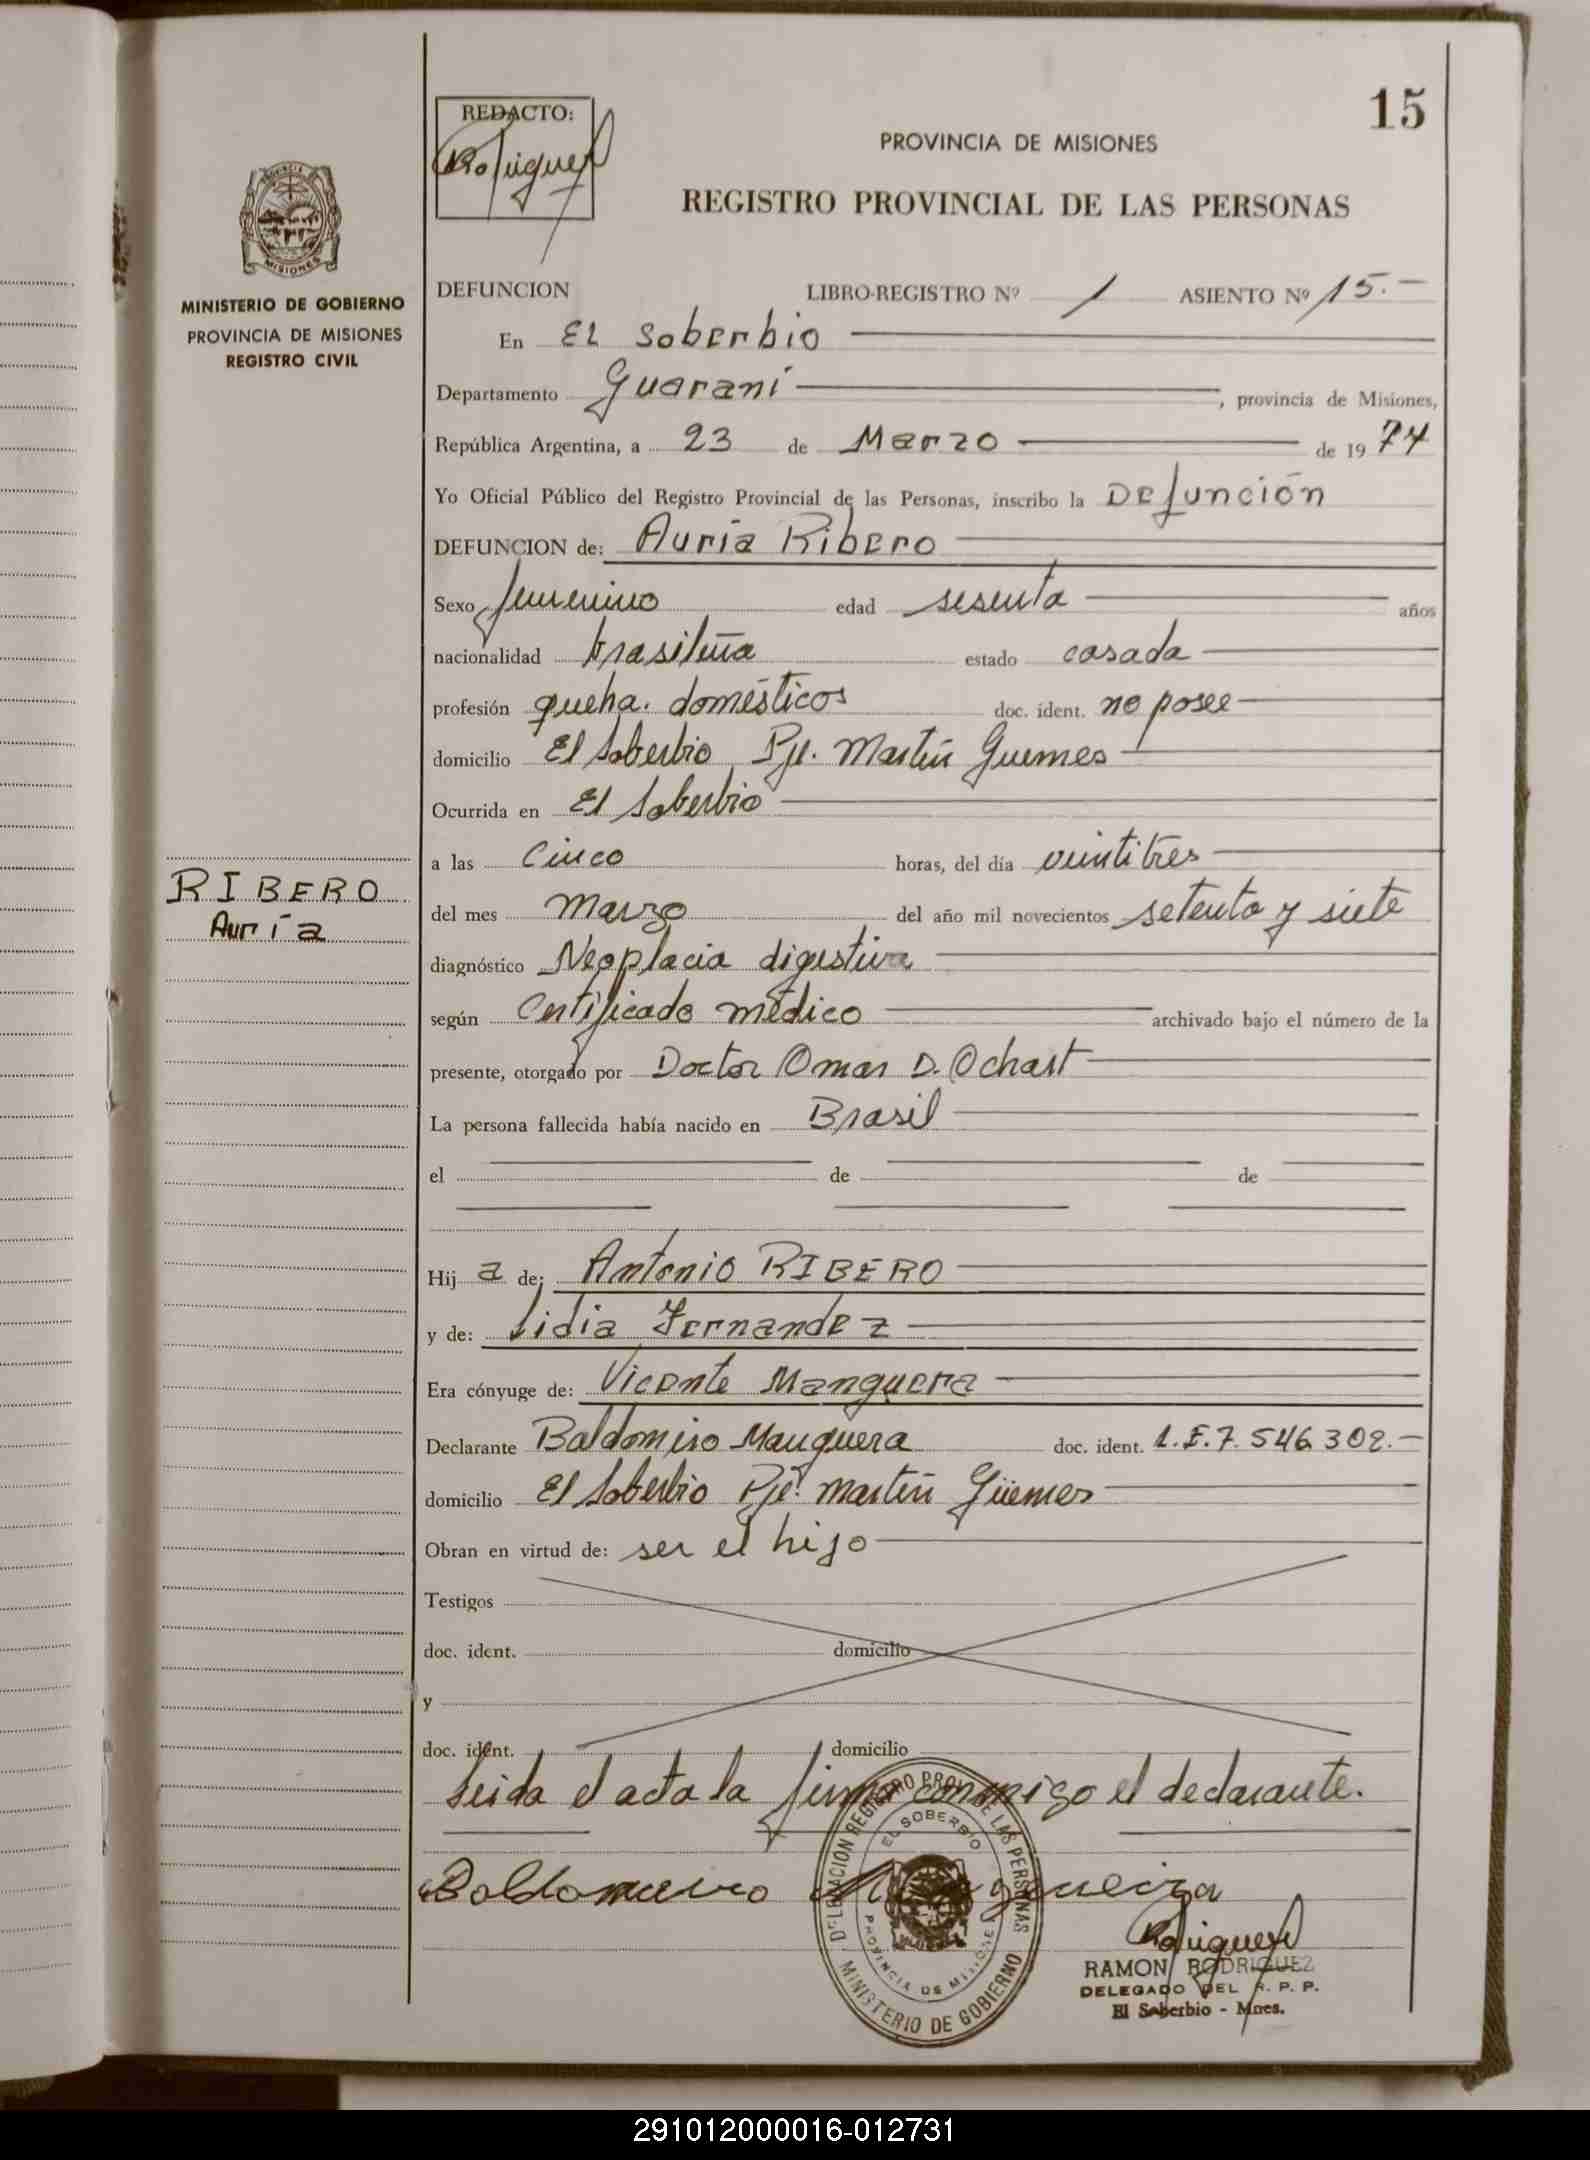 15
REDACTO:
Rodriguez
PROVINCIA DE MISIONES
REGISTRO PROVINCIAL DE LAS PERSONAS
MISIONES
MINISTERIO DE GOBIERNO
PROVINCIA DE MISIONES
REGISTRO CIVIL
DEFUNCION LIBRO-REGISTRO Nº 1 ASIENTO Nº 15.-
En EL Soberbio
Departamento Guaraní , provincia de Misiones,
República Argentina, a 23 de Marzo de 19 74
Yo Oficial Público del Registro Provincial de las Personas, inscribo la Defunción
DEFUNCION de: Auria Ribero
Sexo femenino edad sesenta años
nacionalidad brasileña estado casada
profesión queha. domésticos doc. ident. no posee
domicilio El Soberbio Pje. Martín Guemes
Ocurrida en El Soberbio
a las Cinco horas, del día veintitres
RIBERO
Auria
del mes Marzo del año mil novecientos setenta y siete
diagnóstico Neoplacia digestiva
según Certificado médico archivado bajo el número de la
presente, otorgado por Doctor Omar D. Ochast
La persona fallecida había nacido en Brasil
el de de
Hij a de: Antonio RIBERO
y de: Lidia Fernandez
Era cónyuge de: Vicente Manguera
Declarante Baldomiro Manguera doc. ident. L.E.7.546.302.-
domicilio El Soberbio Pje. Martín Güemes
Obran en virtud de: ser el hijo
Testigos
doc. ident. domicilio
y
doc. ident. domicilio
Leida el acta la firma conmigo el declarante.
DELEGACION REGISTRO PROV. DE LAS PERSONAS
EL SOBERBIO
PROVINCIA DE MISIONES
MINISTERIO DE GOBIERNO
Baldomeiro Mangueira
Rodriguez
RAMON RODRIGUEZ
DELEGADO DEL R. P. P.
El Soberbio - Mnes.
291012000016-012731